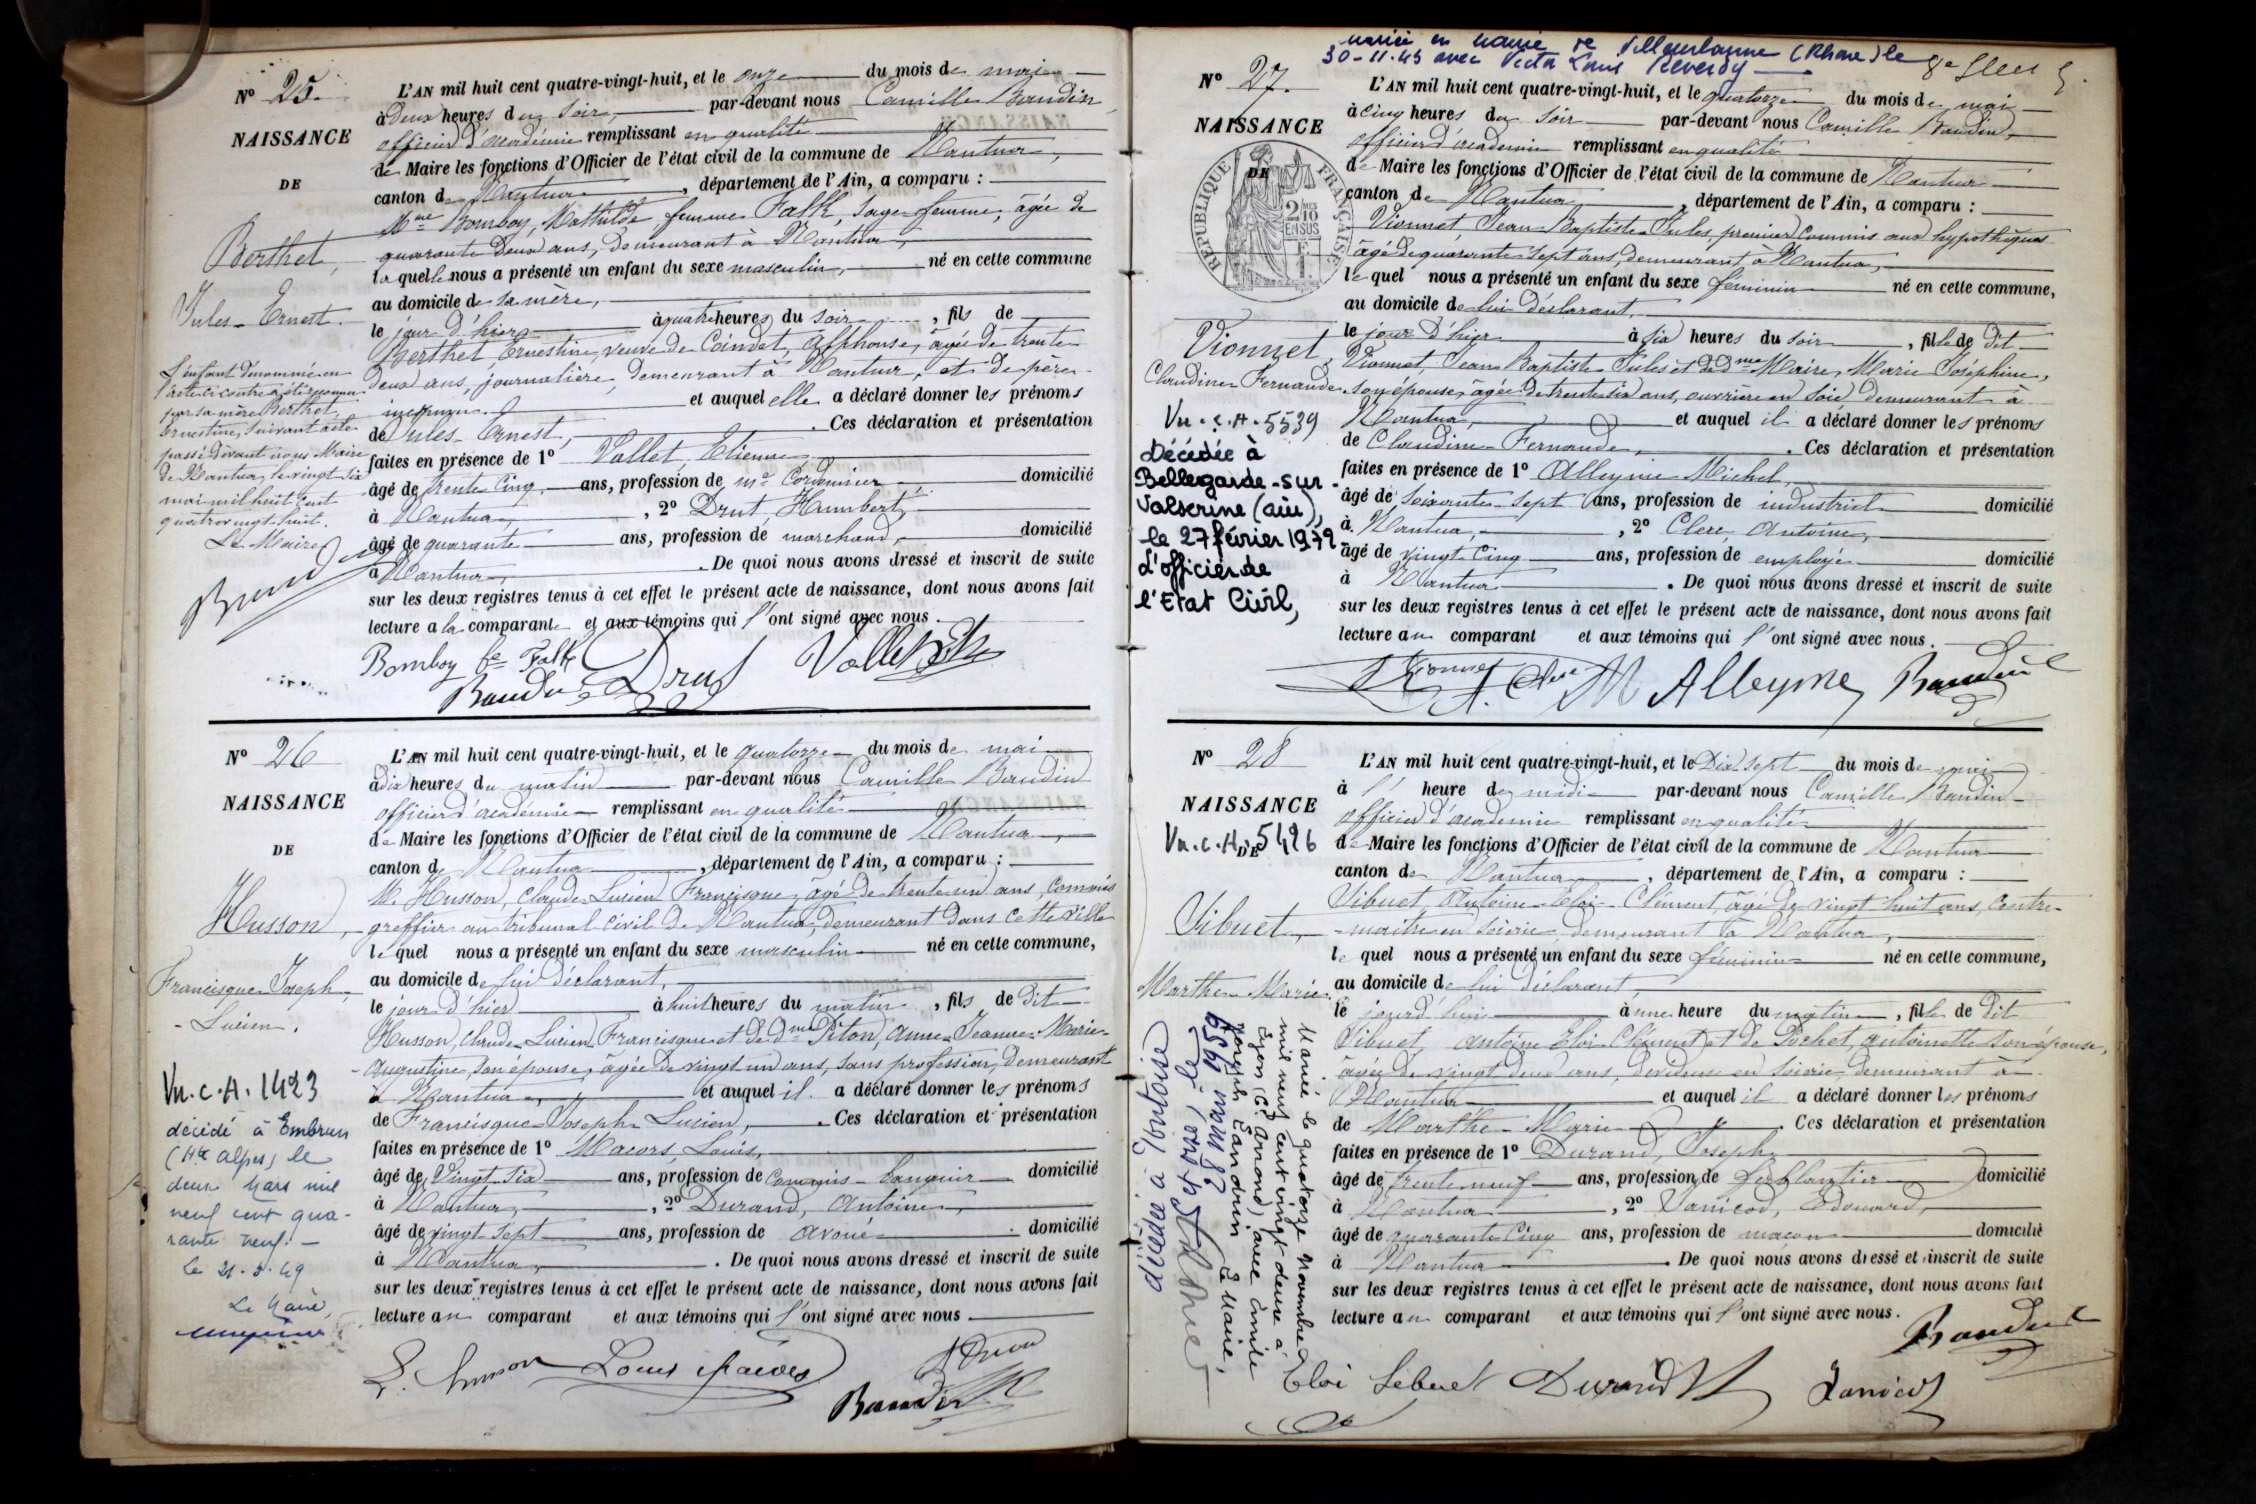 N° 25.
NAISSANCE
DE
Berthet,
Jules-Ernest.
L'enfant dénommé en
l'acte ci contre a été reconnu
par sa mère Berthet,
Ernestine, suivant acte
passé devant nous Maire
de Nantua, le vingt six
mai mil huit cent
quatre vingt huit.
Le Maire
L'AN mil huit cent quatre-vingt-huit, et le onze du mois de mai
à deux heures du soir, par-devant nous Camille Baudin
officier d'académie remplissant en qualité
de Maire les fonctions d'Officier de l'état civil de la commune de Nantua,
canton de Nantua, département de l'Ain, a comparu :
Mme Bomboy, Mathilde femme Falk, sage-femme, âgée de
quarante deux ans, demeurant à Nantua,
laquelle nous a présenté un enfant du sexe masculin, né en cette commune
au domicile de sa mère,
le jour d'hier à quatre heures du soir, fils de
Berthet, Ernestine, veuve de Coindet, Alphonse, âgée de trente
deux ans, journalière, demeurant à Nantua, et de père
inconnu. et auquel elle a déclaré donner les prénoms
de Jules-Ernest, . Ces déclaration et présentation
faites en présence de 1° Vallet, Etienne,
âgé de trente cinq ans, profession de md Cordonnier domicilié
à Nantua, , 2° Drut, Humbert,
âgé de quarante ans, profession de marchand, domicilié
à Nantua, . De quoi nous avons dressé et inscrit de suite
sur les deux registres tenus à cet effet le présent acte de naissance, dont nous avons fait
lecture a la comparante et aux témoins qui l'ont signé avec nous.
Bomboy fe Falk Drut Vallet
Baudin
N° 26
NAISSANCE
DE
Husson,
Francisque-Joseph-
-Lucien.
Vu.c.A. 1423
décédé à Embrun
(Htes Alpes) le
deux Mars mil
neuf cent qua-
rante neuf. –
Le 21-3-49
Le Maire,
L'AN mil huit cent quatre-vingt-huit, et le quatorze du mois de mai
à dix heures du matin par-devant nous Camille Baudin
officier d'académie remplissant en qualité
de Maire les fonctions d'Officier de l'état civil de la commune de Nantua,
canton de Nantua, département de l'Ain, a comparu :
M. Husson, Claude-Lucien Francisque, âgé de trente un ans, commis
greffier au tribunal civil de Nantua, demeurant dans cette ville
lequel nous a présenté un enfant du sexe masculin né en cette commune,
au domicile de lui déclarant,
le jour d'hier à huit heures du matin, fils de dit
Husson, Claude-Lucien Francisque et de dme Piton, Anne-Jeanne-Marie-
-Augustine, son épouse, âgée de vingt un ans, sans profession, demeurant
à Nantua, et auquel il a déclaré donner les prénoms
de Francisque-Joseph-Lucien, . Ces déclaration et présentation
faites en présence de 1° Macors, Louis,
âgé de Vingt six ans, profession de Commis-banquier domicilié
à Nantua, , 2° Durand, Antoine,
âgé de vingt sept ans, profession de avoué domicilié
à Nantua, . De quoi nous avons dressé et inscrit de suite
sur les deux registres tenus à cet effet le présent acte de naissance, dont nous avons fait
lecture au comparant et aux témoins qui l'ont signé avec nous.
L. Husson Louis Macors
Baudin
mariée en mairie de Villeurbanne (Rhône) le
30-11-45 avec Victa Louis Reverdy
N° 27.
NAISSANCE
DE
RÉPUBLIQUE FRANÇAISE
2/10 EN SUS
Vionnet,
Claudine-Fernande.
Vu.c.A. 5539
Décédée à
Bellegarde-sur-
Valserine (ain),
le 27 février 1979
L'officier de
l'Etat Civil,
L'AN mil huit cent quatre-vingt-huit, et le quatorze du mois de mai
à cinq heures du soir par-devant nous Camille Baudin
officier d'académie remplissant en qualité
de Maire les fonctions d'Officier de l'état civil de la commune de Nantua
canton de Nantua, département de l'Ain, a comparu :
Vionnet Jean-Baptiste-Jules, premier Commis aux hypothèques
âgé de quarante sept ans, demeurant à Nantua,
lequel nous a présenté un enfant du sexe féminin né en cette commune,
au domicile de lui déclarant,
le jour d'hier à six heures du soir, fille de dit
Vionnet, Jean Baptiste Jules et de dme Maire, Marie Joséphine,
son épouse, âgée de trente six ans, ouvrière en soie demeurant à
Nantua, et auquel il a déclaré donner les prénoms
de Claudine-Fernande, . Ces déclaration et présentation
faites en présence de 1° Alleyme Michel,
âgé de soixante-sept ans, profession de industriel domicilié
à Nantua, , 2° Clerc Antoine,
âgé de vingt cinq ans, profession de employé domicilié
à Nantua . De quoi nous avons dressé et inscrit de suite
sur les deux registres tenus à cet effet le présent acte de naissance, dont nous avons fait
lecture au comparant et aux témoins qui l'ont signé avec nous.
Vionnet A. Clerc M Alleyme Baudin
N° 28
NAISSANCE
DE
Vu.c.A. 5426
Sibuet,
Marthe-Marie.
décédée à Pontoise
(Set oise) le
28 mars 1959
Mariée le quatorze Novembre
mil neuf cent vingt deux à
Lyon (6e arrond) avec Emile
Joseph Baudrin Le Maire,
L'AN mil huit cent quatre-vingt-huit, et le Dix sept du mois de mai
à l' heure de midi par-devant nous Camille Baudin
officier d'académie remplissant en qualité
de Maire les fonctions d'Officier de l'état civil de la commune de Nantua
canton de Nantua, département de l'Ain, a comparu :
Sibuet, Antoine-Eloi-Clément, âgé de vingt huit ans, contre-
-maître en soierie demeurant à Nantua,
lequel nous a présenté un enfant du sexe féminin né en cette commune,
au domicile de lui déclarant,
le jourd'hui à une heure du matin, fille de dit
Sibuet Antoine Eloi Clément et de Pochet, Antoinette son épouse,
âgée de vingt deux ans, dévideuse en soierie demeurant à
Nantua et auquel il a déclaré donner les prénoms
de Marthe-Marie . Ces déclaration et présentation
faites en présence de 1° Durand, Joseph
âgé de trente neuf ans, profession de ferblantier domicilié
à Nantua , 2° Janicod, Edouard,
âgé de quarante cinq ans, profession de maçon domicilié
à Nantua . De quoi nous avons dressé et inscrit de suite
sur les deux registres tenus à cet effet le présent acte de naissance, dont nous avons fait
lecture au comparant et aux témoins qui l'ont signé avec nous.
Baudin
Eloi Sibuet Durand Janicod